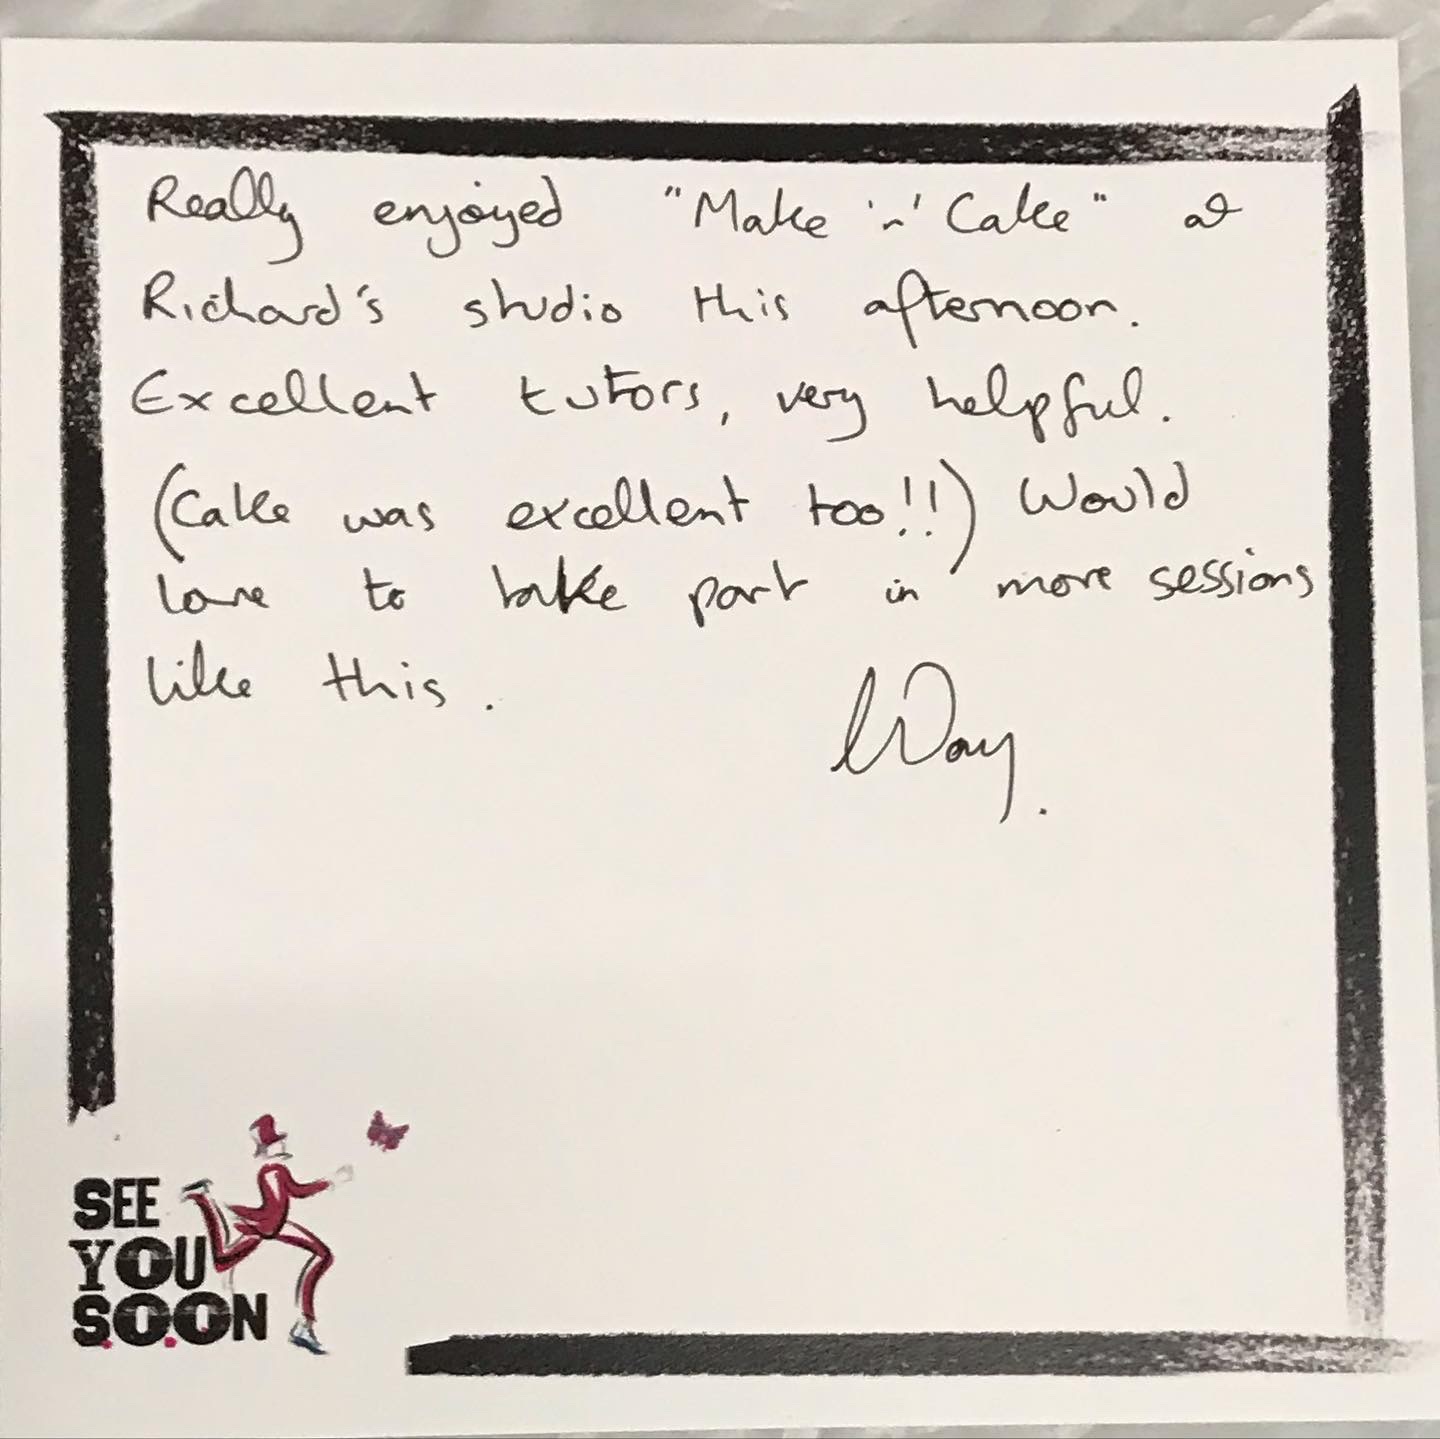 Really enjoyed "Make 'n' Cake" at
Richard's studio this afternoon.
Excellent tutors, very helpful.
(Cake was excellent too!!) Would
love to take part in more sessions
like this.
SEE
YOU
S.O.O.N